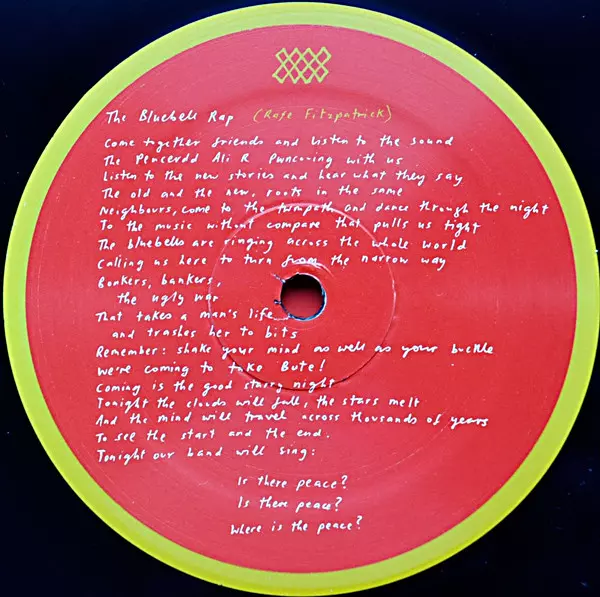 The Bluebell Rap (Rafe Fitzpatrick)
Come together friends and listen to the sound
The Pencerdd Ali R Pwnco-ing with us
Listen to the new stories and hear what they say
The old and the new, roots in the same
Neighbours, come to the twmpath and dance through the night
To the music without compare that pulls us tight
The bluebells are ringing across the whole world
Calling us here to turn from the narrow way
Bonkers, bankers,
the ugly war
That takes a man's life
and trashes her to bits
Remember: shake your mind as well as your buckle
We're coming to take Bute!
Coming is the good starry night
Tonight the clouds will fall, the stars melt
And the mind will travel across thousands of years
To see the start and the end.
Tonight our band will sing:
Is there peace?
Is there peace?
Where is the peace?